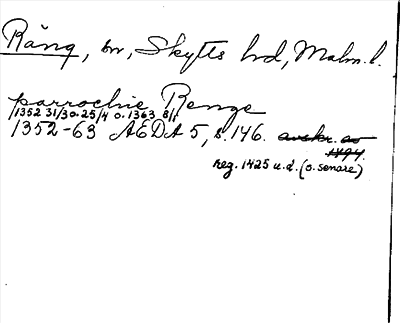 Räng, sn, Skytts hd, Malm. l.
parrochie Renge
1352 31/3 o. 25/4 o. 1363 8/1
1352-63 AEDA 5, s. 146. avskr. av
1494.
Reg. 1425 u.d. (o. senare)